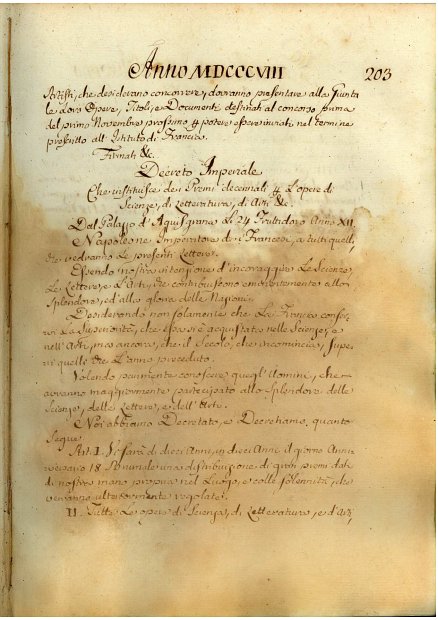 Anno MDCCCVIII 203
Artisti, che desiderano concorrere, dovranno presentare alla Giunta
le Loro Opere, Titoli, e Documenti destinati al concorso prima
del primo Novembre prossimo p potere essere inviati nel termine
prescritto all' Istituto di Francia.
Firmati &c.
Decreto Imperiale
Che instituisce dei Premj decennali p L'opere di
Scienze, di Letteratura, di Arti &c.
Dal Palazzo d'Aquisgrana li 24 Fruttidoro Anno XII.
Napoleone Imperatore de i Francesi, a tutti quelli,
che vedranno Le presenti Lettere.
Essendo nostra intenzione d'incoraggire Le Scienze,
Le Lettere, e L'Arti, che contribuiscono eminentemente allo
Splendore, ed alla gloria delle Nazioni.
Desiderando non solamente che La Francia conser,
vi La Superiorità, che essa si è acquistata nelle Scienze, e
nell'Arti, ma ancora, che il Secolo, che incomincia, supe,
ri quelli che L'anno preceduto.
Volendo parimente conoscere quegl' Uomini, che
avranno maggiormente partecipato allo Splendore delle
Scienze, delle Lettere, e dell' Arti.
Noi abbiamo Decretato, e Decretiamo, quanto
Segue
Art. I. Si farà di dieci Anni, in dieci Anni il giorno Anni,
versario 18 Brumale una distribuzione di gran premi dati
di nostra mano propria nel Luogo, e colle solennità, che
verranno ulteriormente regolate.
II. Tutte Le opere di Scienza, di Letteratura, e d'Arti,